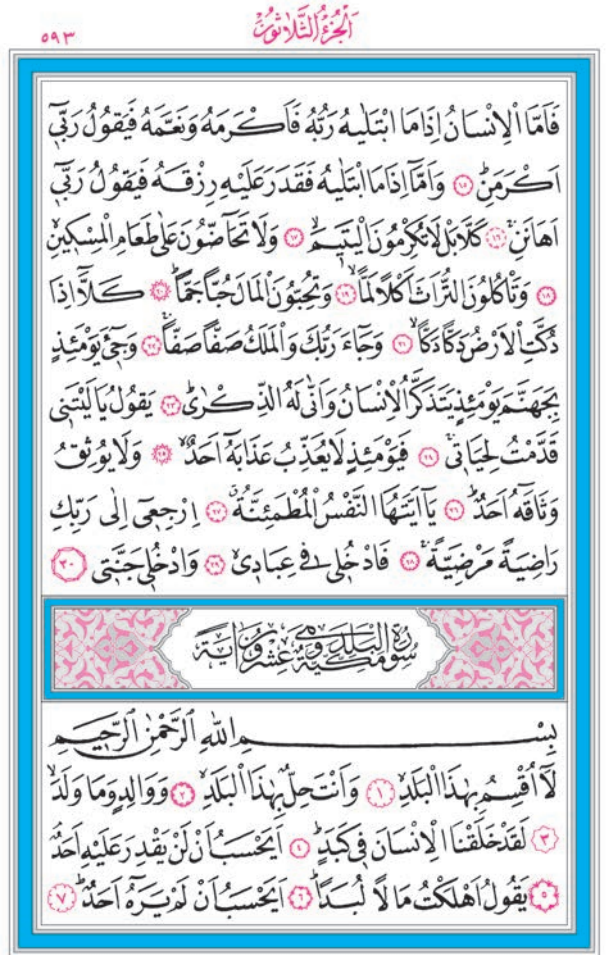 ٥٩٣
اَلْجُزْءُ الثَّلَاثُونَ
فَاَمَّا الْاِنْسَانُ اِذَا مَا ابْتَلٰيهُ رَبُّهُ فَاَكْرَمَهُ وَنَعَّمَهُ فَيَقُولُ رَبّ۪ٓي
اَكْرَمَنِۜ ١٥ وَاَمَّٓا اِذَا مَا ابْتَلٰيهُ فَقَدَرَ عَلَيْهِ رِزْقَهُ فَيَقُولُ رَبّ۪ٓي
اَهَانَنِۚ ١٦ كَلَّا بَلْ لَا تُكْرِمُونَ الْيَت۪يمَۙ ١٧ وَلَا تَحَٓاضُّونَ عَلٰى طَعَامِ الْمِسْك۪ينِۙ
١٨ وَتَأْكُلُونَ التُّرَاثَ اَكْلًا لَمًّاۙ ١٩ وَتُحِبُّونَ الْمَالَ حُبًّا جَمًّاۜ ٢٠ كَلَّٓا اِذَا
دُكَّتِ الْاَرْضُ دَكًّا دَكًّاۙ ٢١ وَجَٓاءَ رَبُّكَ وَالْمَلَكُ صَفًّا صَفًّاۚ ٢٢ وَج۪ٓيءَ يَوْمَئِذٍ
بِجَهَنَّمَ يَوْمَئِذٍ يَتَذَكَّرُ الْاِنْسَانُ وَاَنّٰى لَهُ الذِّكْرٰىۜ ٢٣ يَقُولُ يَا لَيْتَن۪ي
قَدَّمْتُ لِحَيَات۪يۚ ٢٤ فَيَوْمَئِذٍ لَا يُعَذِّبُ عَذَابَهُٓ اَحَدٌۙ ٢٥ وَلَا يُوثِقُ
وَثَاقَهُٓ اَحَدٌۜ ٢٦ يَٓا اَيَّتُهَا النَّفْسُ الْمُطْمَئِنَّةُۗ ٢٧ اِرْجِع۪ٓي اِلٰى رَبِّكِ
رَاضِيَةً مَرْضِيَّةًۚ ٢٨ فَادْخُل۪ي ف۪ي عِبَاد۪يۙ ٢٩ وَادْخُل۪ي جَنَّت۪ي ٣٠
سُورَةُ الْبَلَدِ مَكِّيَّةٌ وَهِيَ عِشْرُونَ اٰيَةً
بِسْمِ اللّٰهِ الرَّحْمٰنِ الرَّح۪يمِ
لَٓا اُقْسِمُ بِهٰذَا الْبَلَدِۙ ١ وَاَنْتَ حِلٌّ بِهٰذَا الْبَلَدِۙ ٢ وَوَالِدٍ وَمَا وَلَدَۙ
٣ لَقَدْ خَلَقْنَا الْاِنْسَانَ ف۪ي كَبَدٍۜ ٤ اَيَحْسَبُ اَنْ لَنْ يَقْدِرَ عَلَيْهِ اَحَدٌۢ
٥ يَقُولُ اَهْلَكْتُ مَالًا لُبَدًاۜ ٦ اَيَحْسَبُ اَنْ لَمْ يَرَهُٓ اَحَدٌۜ ٧